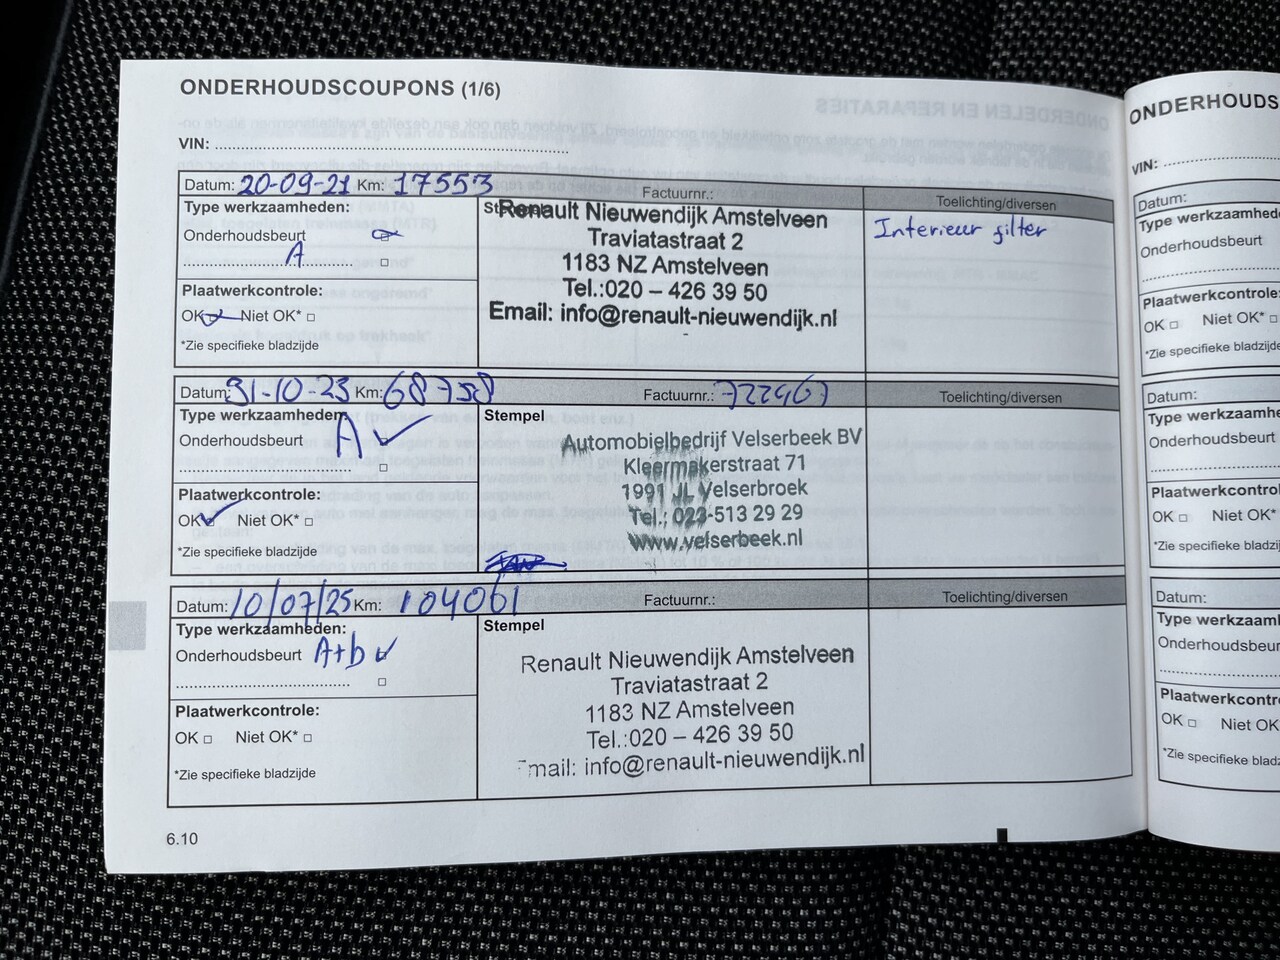 ONDERHOUDSCOUPONS (1/6)
VIN:
Datum: 20-09-21 Km: 17553 Factuurnr.:
Toelichting/diversen
Type werkzaamheden:
Onderhoudsbeurt
A
Plaatwerkcontrole:
OK Niet OK*
*Zie specifieke bladzijde
Renault Nieuwendijk Amstelveen
Traviatastraat 2
1183 NZ Amstelveen
Tel.:020 – 426 39 50
Email: info@renault-nieuwendijk.nl
Interieur filter
Datum: 31-10-23 Km: 68758 Factuurnr.: 722467
Toelichting/diversen
Type werkzaamheden
Onderhoudsbeurt A
Plaatwerkcontrole:
OK Niet OK*
*Zie specifieke bladzijde
Stempel
Automobielbedrijf Velserbeek BV
Kleermakerstraat 71
1991 JL Velserbroek
Tel.: 023-513 29 29
www.velserbeek.nl
Datum: 10/07/25 Km: 104061 Factuurnr.:
Toelichting/diversen
Type werkzaamheden:
Onderhoudsbeurt A+b
Plaatwerkcontrole:
OK Niet OK*
*Zie specifieke bladzijde
Stempel
Renault Nieuwendijk Amstelveen
Traviatastraat 2
1183 NZ Amstelveen
Tel.:020 – 426 39 50
mail: info@renault-nieuwendijk.nl
6.10
ONDERHOUDS
VIN:
Datum:
Type werkzaamhed
Onderhoudsbeurt
Plaatwerkcontrole:
OK Niet OK*
*Zie specifieke bladzijde
Datum:
Type werkzaamhe
Onderhoudsbeurt
Plaatwerkcontrol
OK Niet OK*
*Zie specifieke bladzijd
Datum:
Type werkzaam
Onderhoudsbeur
Plaatwerkcontro
OK Niet OK
*Zie specifieke bladz